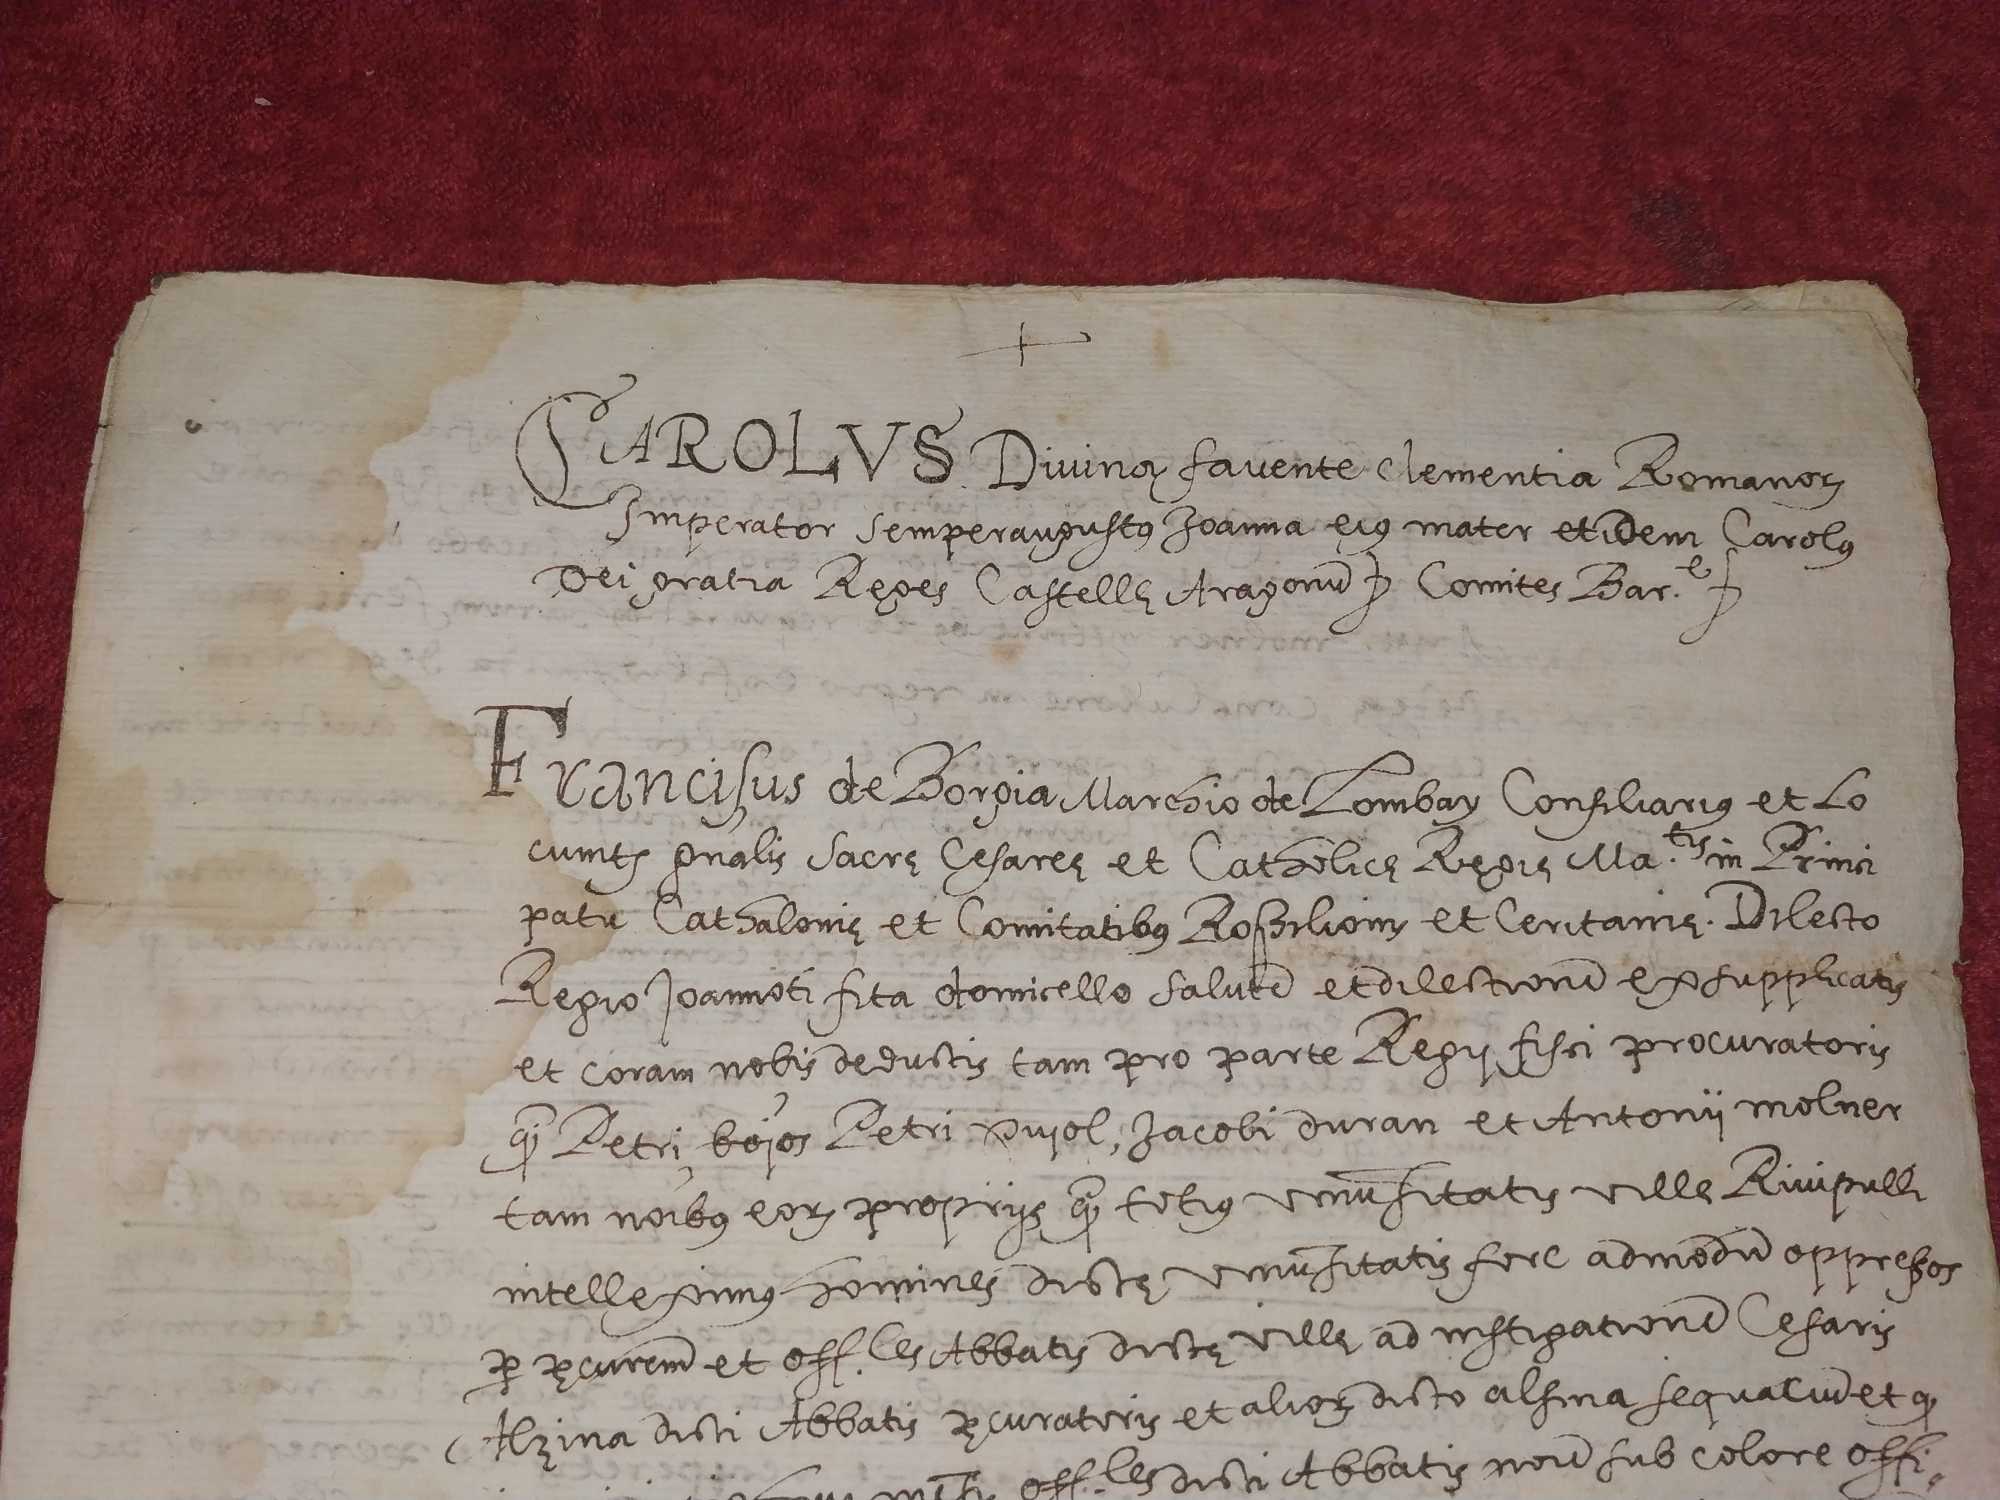 CAROLVS Divina favente clementia Romanoꝝ
Imperator semper augustꝰ Joanna eiꝰ mater et idem Carolꝰ
Dei gratia Reges Castellę Aragonũ Comites Bar.e
Francisus de Borgia Marchio de Lombay Consiliariꝰ et Lo
cumts gñalis Sacrę Cesareę et Catholicę Regię Ma.tis in Princi
patu Cathalonię et Comitatibꝰ Rossilionis et Ceritanię. Dilecto
Regio Joannoti fita domicello salutẽ et dilectionẽ ex supplicatis
et coram nobis deductis tam pro parte Regij fisci procuratoris
qͣ Petri bojos Petri pujol, Jacobi duran et Antonij molner
tam noibꝰ eoꝝ proprijs qͣ totiꝰ vniũsitatis villę Riuipulli
intelleximꝰ homines dictę vniũsitatis fore admodũ oppressos
ꝑ ꝓcuremˉ et off.les Abbatis dictę villę ad instigationẽ Cesaris
Alzina dicti Abbatis ꝓcuratoris et alioꝝ dicto alsina sequaciũ et ꝙ
off.les dicti Abbatis noũ sub colore offi